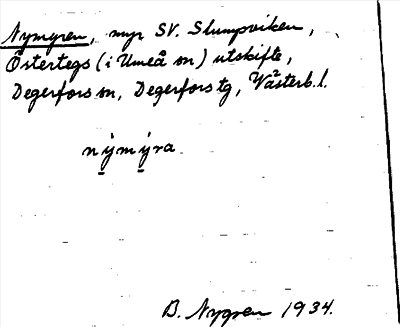 Nymyren, myr SV. Slumpsviken,
Östertegs (i Umeå sn) utskifte,
Degerfors sn, Degerfors tg, Västerb. l.
nýmýra
B. Nygren 1934.